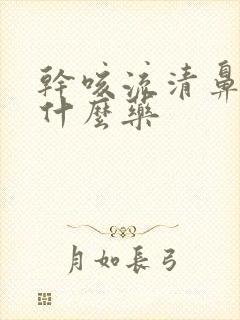 幹咳流清鼻
什麼藥
月如長弓